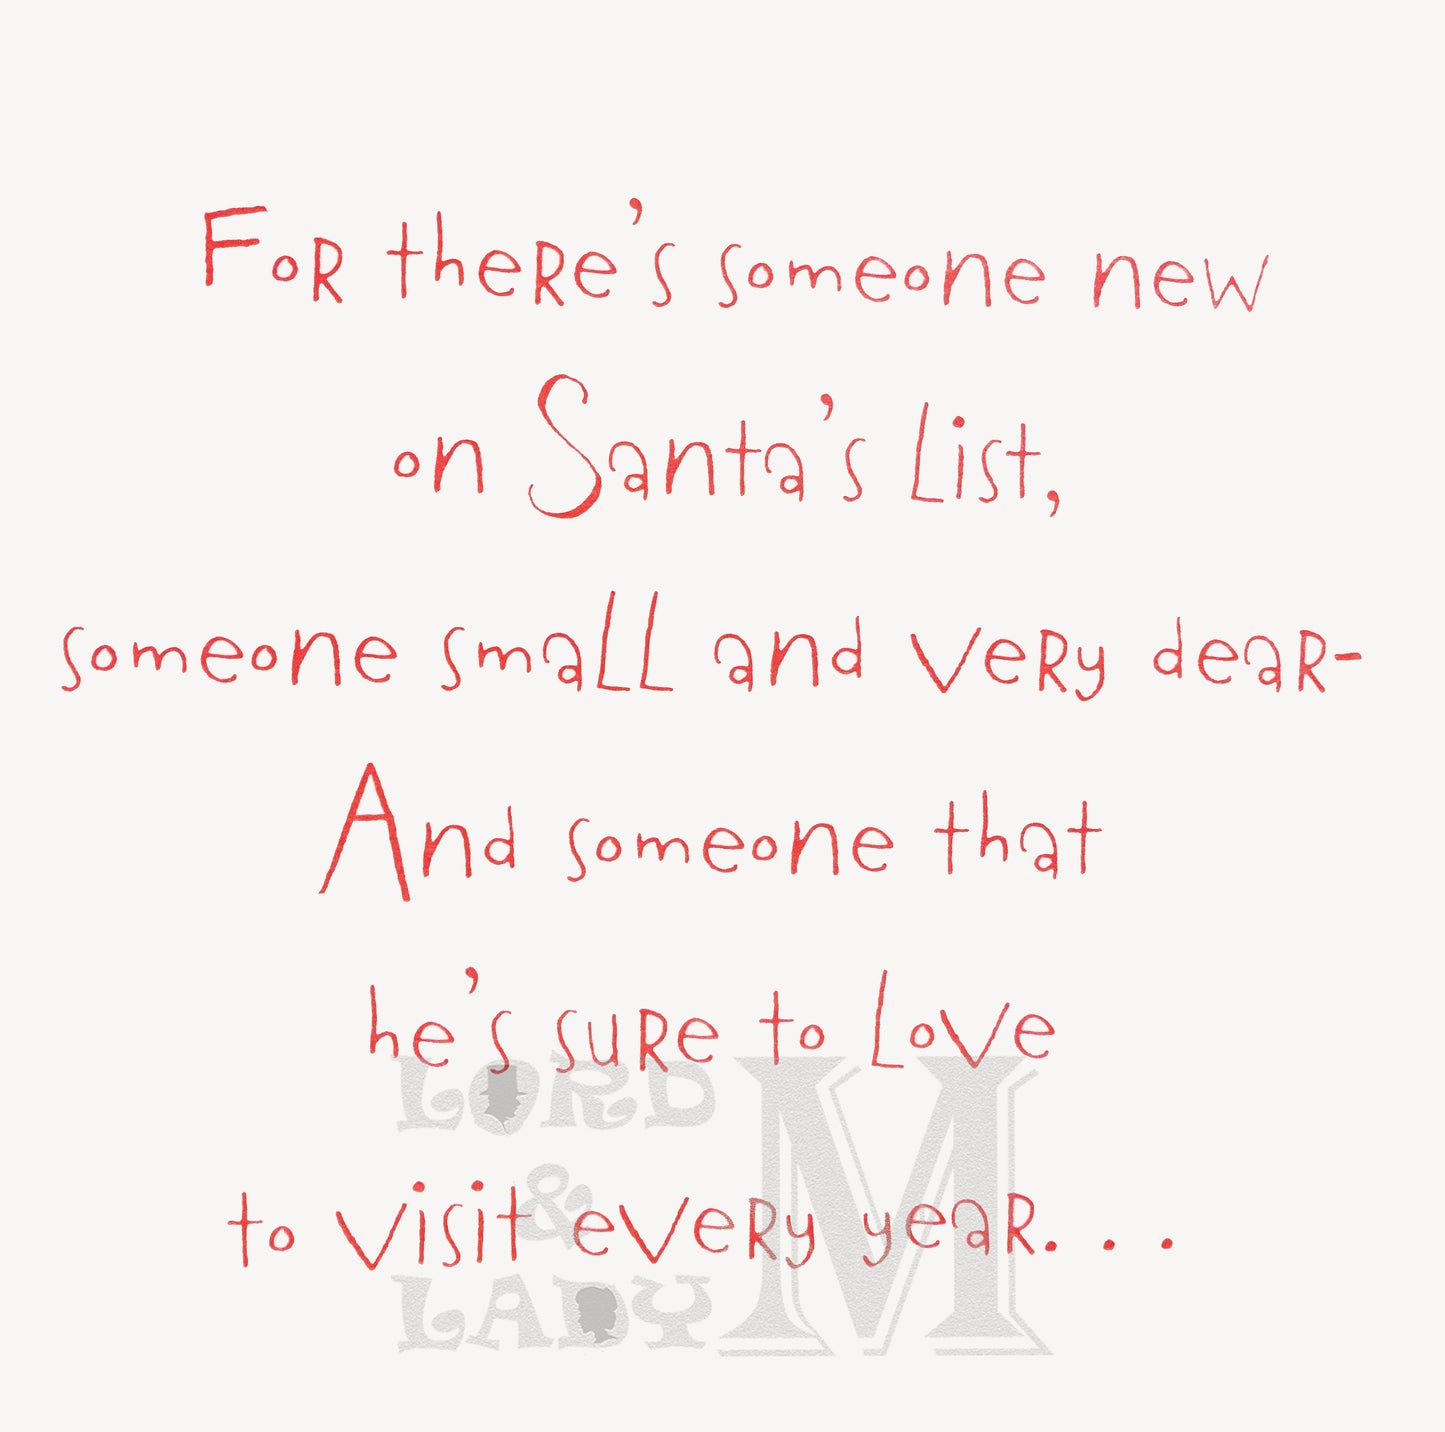 For there's someone new
on Santa's list,
someone small and very dear-
And someone that
he's sure to love
to visit every year. . .
LORD
&
LADY
M